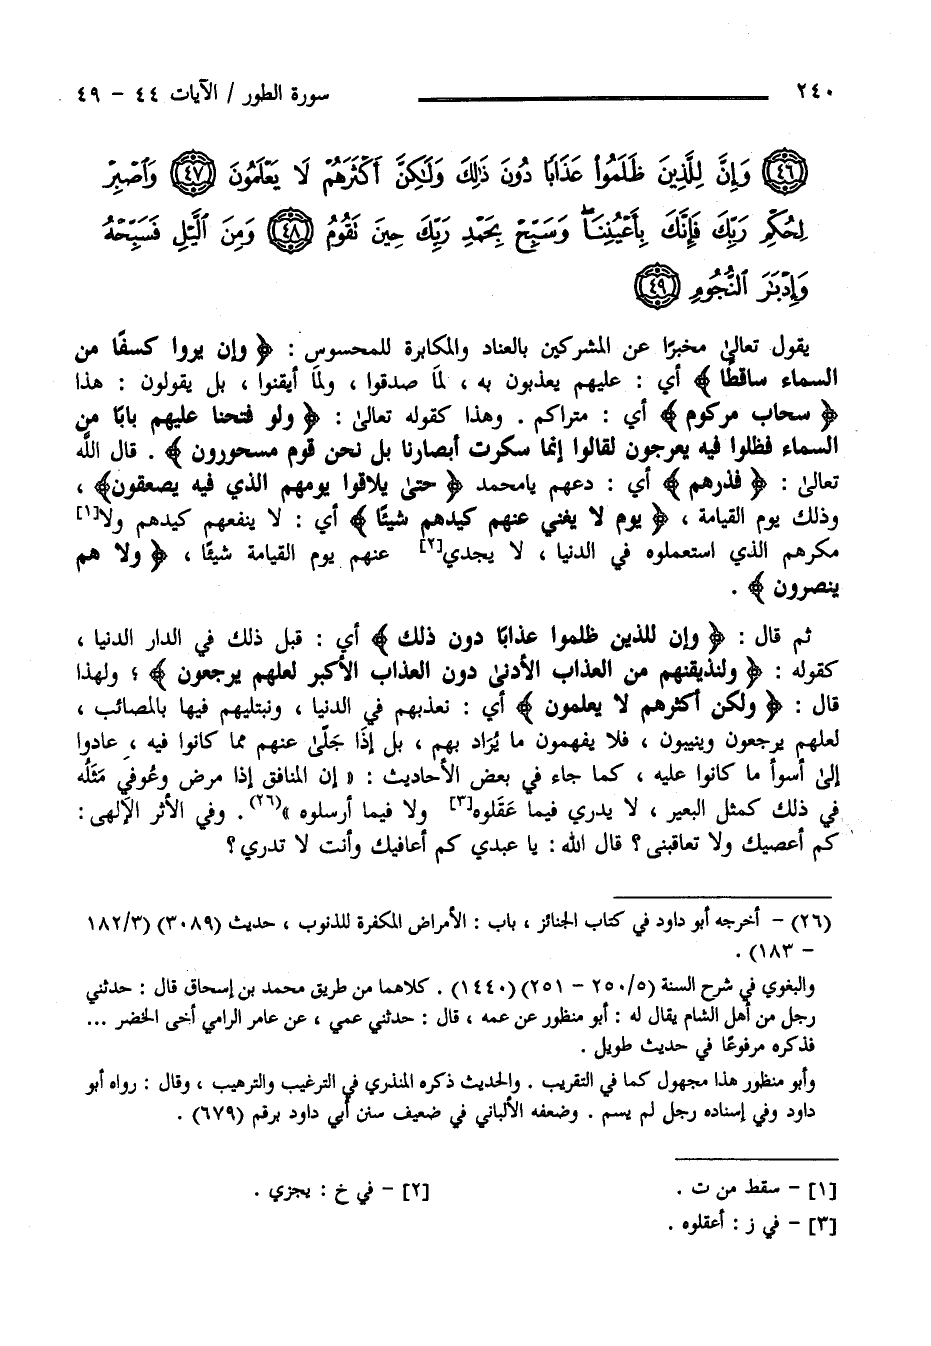 ٢٤٠ سورة الطور / الآيات ٤٤ - ٤٩
﴿٤٦﴾ وَإِنَّ لِلَّذِينَ ظَلَمُوا۟ عَذَابًا دُونَ ذَٰلِكَ وَلَـٰكِنَّ أَكْثَرَهُمْ لَا يَعْلَمُونَ ﴿٤٧﴾ وَٱصْبِرْ
لِحُكْمِ رَبِّكَ فَإِنَّكَ بِأَعْيُنِنَا ۖ وَسَبِّحْ بِحَمْدِ رَبِّكَ حِينَ تَقُومُ ﴿٤٨﴾ وَمِنَ ٱلَّيْلِ فَسَبِّحْهُ
وَإِدْبَـٰرَ ٱلنُّجُومِ ﴿٤٩﴾
يقول تعالىٰ مخبرًا عن المشركين بالعناد والمكابرة للمحسوس : ﴿ وإن يروا كسفًا من
السماء ساقطًا ﴾ أي : عليهم يعذبون به ، لمَا صدقوا ، ولمَا أيقنوا ، بل يقولون : هذا
﴿ سحاب مركوم ﴾ أي : متراكم . وهذا كقوله تعالىٰ : ﴿ ولو فتحنا عليهم بابًا من
السماء فظلوا فيه يعرجون لقالوا إنما سكرت أبصارنا بل نحن قوم مسحورون ﴾ . قال اللَّه
تعالىٰ : ﴿ فذرهم ﴾ أي : دعهم يامحمد ﴿ حتىٰ يلاقوا يومهم الذي فيه يصعقون﴾ ،
وذلك يوم القيامة ، ﴿ يوم لا يغني عنهم كيدهم شيئًا ﴾ أي : لا ينفعهم كيدهم ولا[١]
مكرهم الذي استعملوه في الدنيا ، لا يجدي[٢] عنهم يوم القيامة شيئًا ، ﴿ ولا هم
ينصرون ﴾ .
ثم قال : ﴿ وإن للذين ظلموا عذابًا دون ذلك ﴾ أي : قبل ذلك في الدار الدنيا ،
كقوله : ﴿ ولنذيقنهم من العذاب الأدنىٰ دون العذاب الأكبر لعلهم يرجعون ﴾ ؛ ولهذا
قال : ﴿ ولكن أكثرهم لا يعلمون ﴾ أي : نعذبهم في الدنيا ، ونبتليهم فيها بالمصائب ،
لعلهم يرجعون وينيبون ، فلا يفهمون ما يُرَاد بهم ، بل إذًا جَلَّىٰ عنهم مما كانوا فيه ، عادوا
إلىٰ أسوأ ما كانوا عليه ، كما جاء في بعض الأحاديث : « إن المنافق إذا مرض وعُوفي مَثَلُه
في ذلك كمثل البعير ، لا يدري فيما عَقَلوه[٣] ولا فيما أرسلوه »(٢٦). وفي الأثر الإلٰهى :
كم أعصيك ولا تعاقبنى ؟ قال الله : يا عبدي كم أعافيك وأنت لا تدري ؟
(٢٦) - أخرجه أبو داود في كتاب الجنائز ، باب : الأمراض المكفرة للذنوب ، حديث (٣٠٨٩) (١٨٢/٣
- ١٨٣) .
والبغوي في شرح السنة (٢٥٠/٥ - ٢٥١) (١٤٤٠) . كلاهما من طريق محمد بن إسحاق قال : حدثني
رجل من أهل الشام يقال له : أبو منظور عن عمه ، قال : حدثني عمي ، عن عامر الرامي أخى الخضر ...
فذكره مرفوعًا في حديث طويل .
وأبو منظور هذا مجهول كما في التقريب . والحديث ذكره المنذري في الترغيب والترهيب ، وقال : رواه أبو
داود وفي إسناده رجل لم يسم . وضعفه الألباني في ضعيف سنن أبي داود برقم (٦٧٩) .
[١] - سقط من ت . [٢] - في خ : يجزي .
[٣] - في ز : أعقلوه .